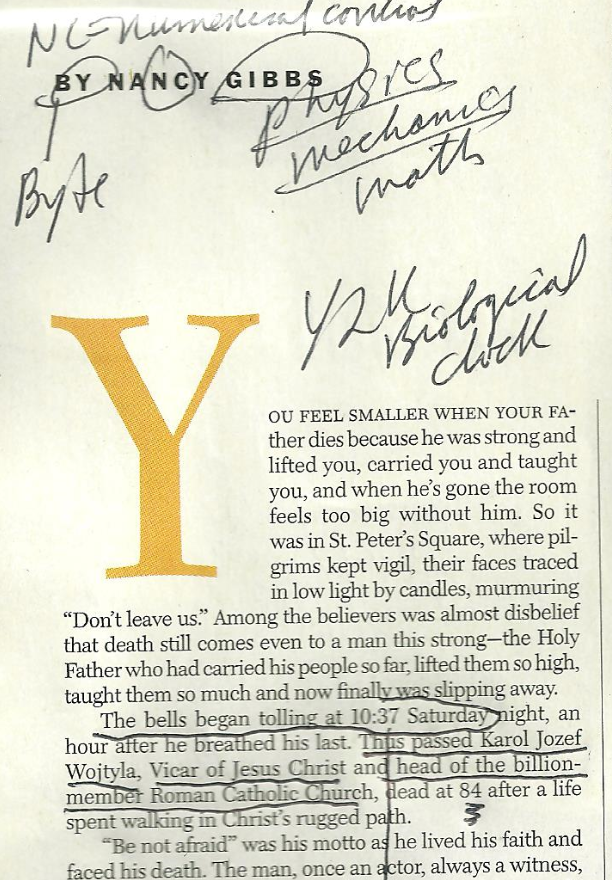 NC=Numerical control
BY NANCY GIBBS
physics
mechanics
math
Byte
Y2K
Biological
clock
YOU FEEL SMALLER WHEN YOUR FA-
ther dies because he was strong and
lifted you, carried you and taught
you, and when he's gone the room
feels too big without him. So it
was in St. Peter's Square, where pil-
grims kept vigil, their faces traced
in low light by candles, murmuring
“Don't leave us.” Among the believers was almost disbelief
that death still comes even to a man this strong—the Holy
Father who had carried his people so far, lifted them so high,
taught them so much and now finally was slipping away.
The bells began tolling at 10:37 Saturday night, an
hour after he breathed his last. Thus passed Karol Jozef
Wojtyla, Vicar of Jesus Christ and head of the billion-
member Roman Catholic Church, dead at 84 after a life
spent walking in Christ's rugged path.
“Be not afraid” was his motto as he lived his faith and
faced his death. The man, once an actor, always a witness,